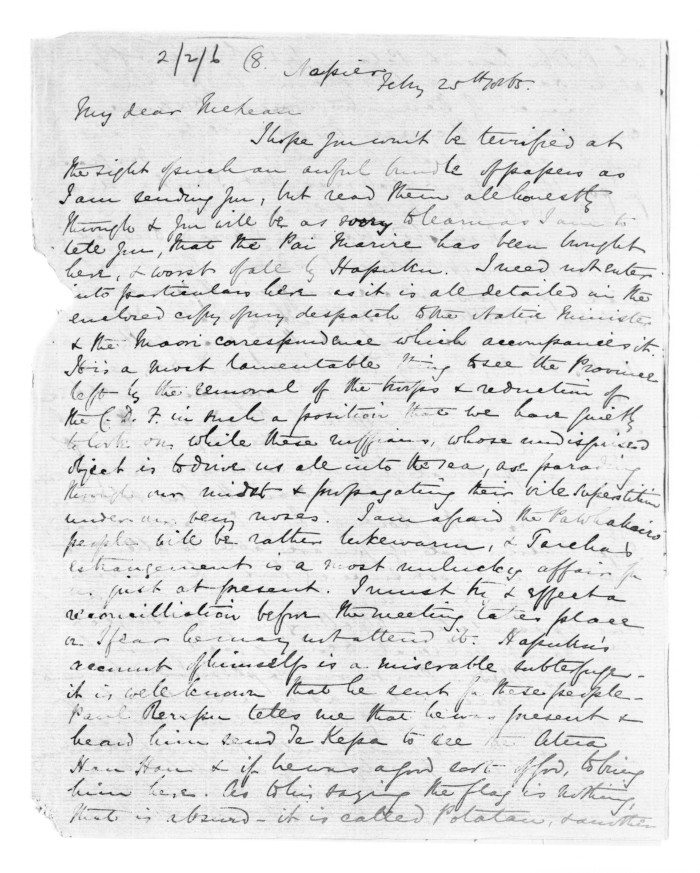 2/2/6 (8. Napier
Feby 25th 1865.
My dear McLean
I hope you won't be terrified at
the sight of such an awful bundle of papers as
I am sending you, but read them all honestly
through & you will be as sorry to learn as I am to
tell you, that the Pai Marire has been brought
here, & worst of all by Hapuku. I need not enter
into particulars here as it is all detailed in the
enclosed copy of my despatch to the Native Minister
& the Maori correspondence which accompanies it.
It is a most lamentable thing to see the Province
left by the removal of the troops & reduction of
the C. D. F. in such a position that we have quietly
to look on, while these ruffians, whose undisguised
object is to drive us all into the sea, are parading
through our midst & propagating their vile superstition
under our very noses. I am afraid the Pawhakairo
people will be rather lukewarm, & Tareha's
estrangement is a most unlucky affair for
us just at present. I must try & effect a
reconcilliation before the meeting takes place
or I fear he may not attend it. Hapuku's
account of himself is a miserable subterfuge -
it is well known that he sent for these people -
Paul Rerepu tells me that he was present &
heard him send Te Kepa to see the Atua
Hau Hau & if he was a good sort of God, to bring
him here. As to his saying the flag is nothing,
that is absurd - it is called Potatau, & another